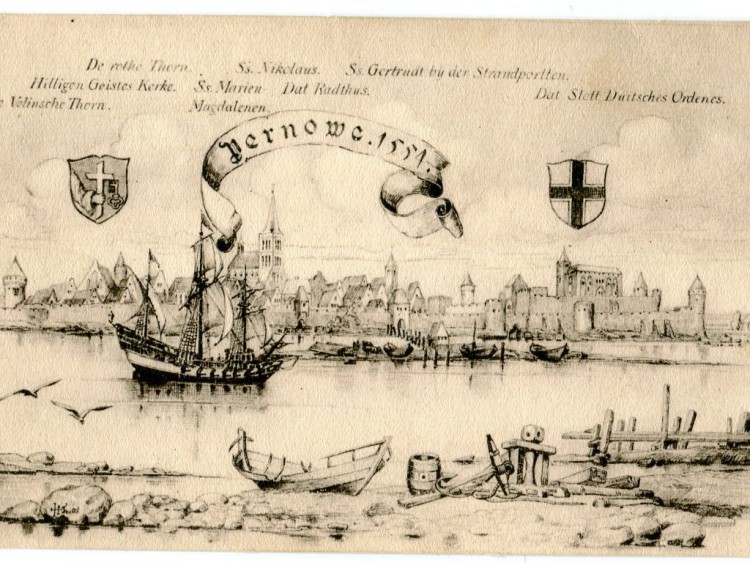 De rothe Thorn. Ss. Nikolaus. Ss. Gertrudt by der Strandportten.
Hilligen Geistes Kerke. Ss. Marien Dat Radthus. Dat Slott Düitsches Ordenes.
Volinsche Thorn. Magdalenen.
Pernowe. 1551.